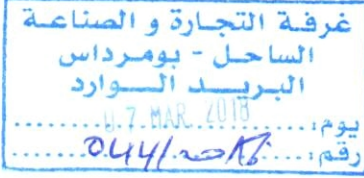 غرفـة التجـارة و الصناعـة
الساحـل - بومـرداس
البريـد الـوارد
يوم: 07 MAR 2018
رقم: 044/